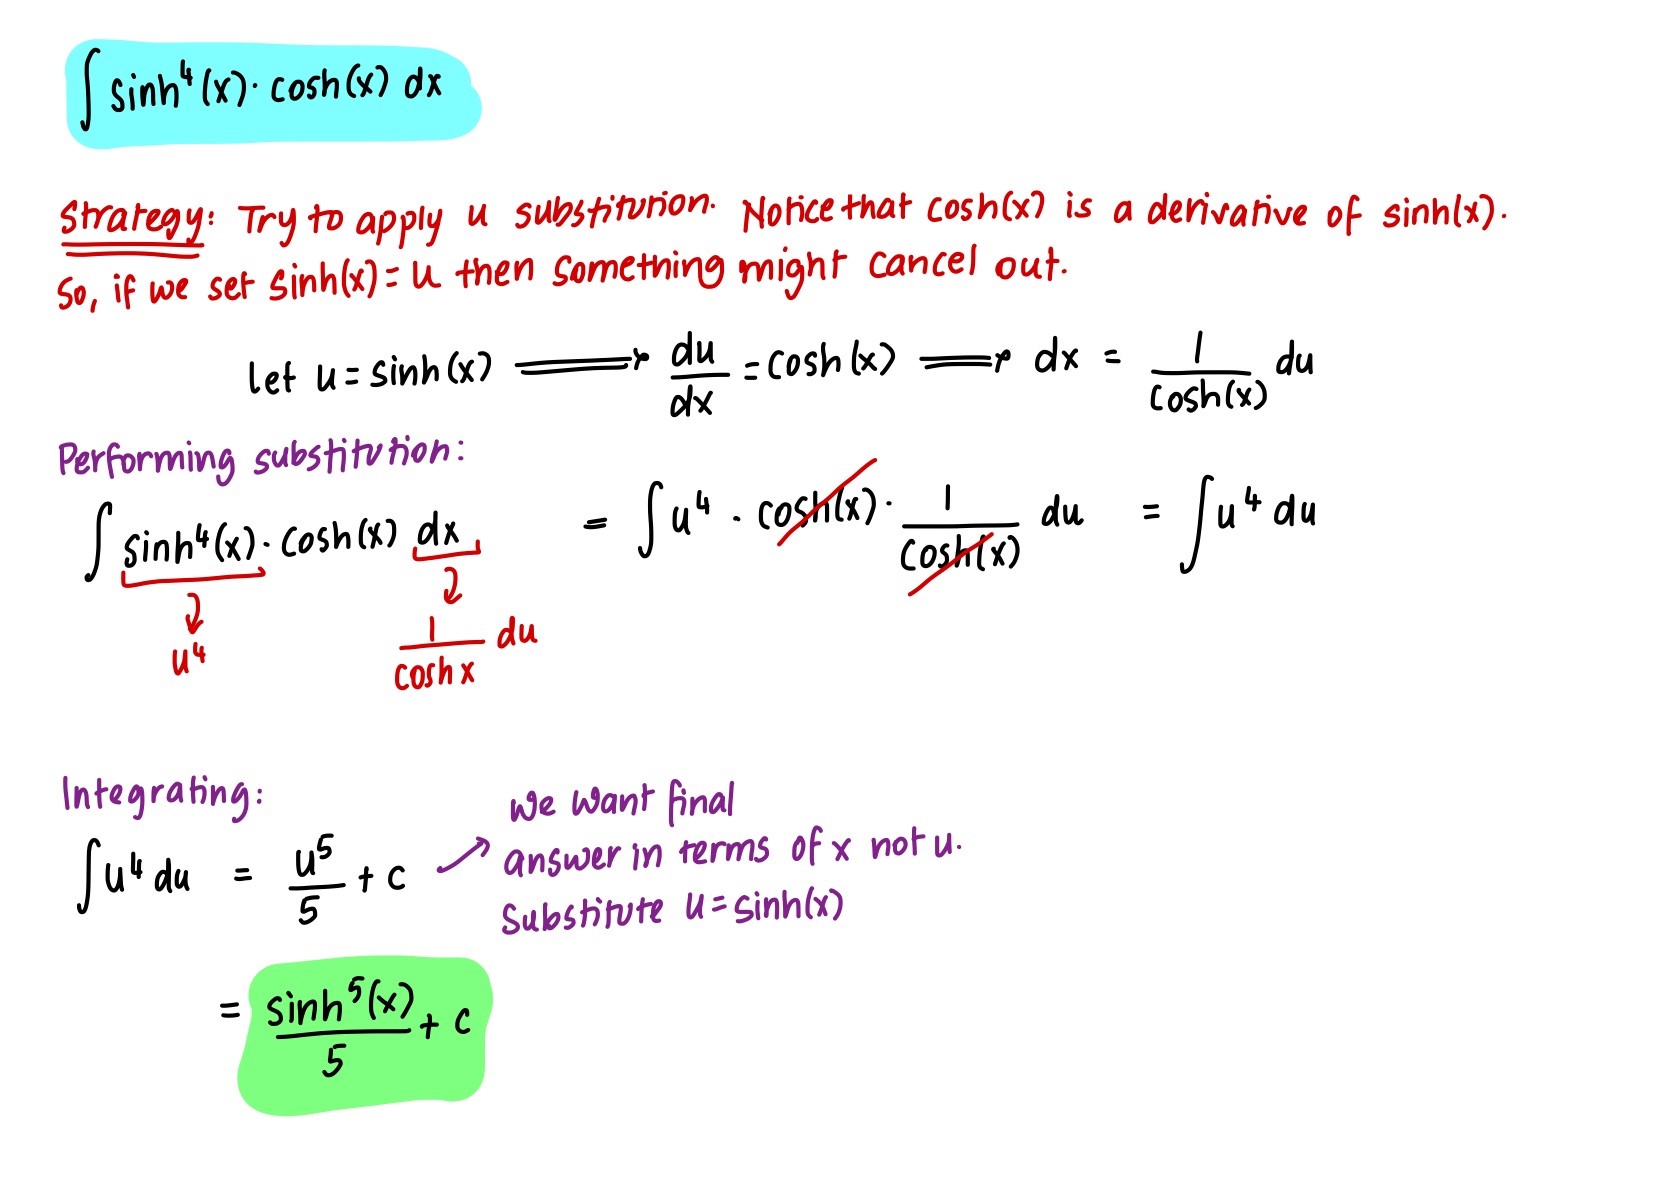 ∫ sinh⁴(x)· cosh(x) dx
Strategy: Try to apply u substitution. Notice that cosh(x) is a derivative of sinh(x).
So, if we set sinh(x) = u then something might cancel out.
Let u = sinh(x) ⟹ du/dx = cosh(x) ⟹ dx = 1/cosh(x) du
Performing substitution:
∫ sinh⁴(x)· cosh(x) dx = ∫ u⁴ · cosh(x) · 1/cosh(x) du = ∫ u⁴ du
u⁴ 1/cosh x du
Integrating:
we want final
answer in terms of x not u.
Substitute u = sinh(x)
∫ u⁴ du = u⁵/5 + c
= sinh⁵(x)/5 + c